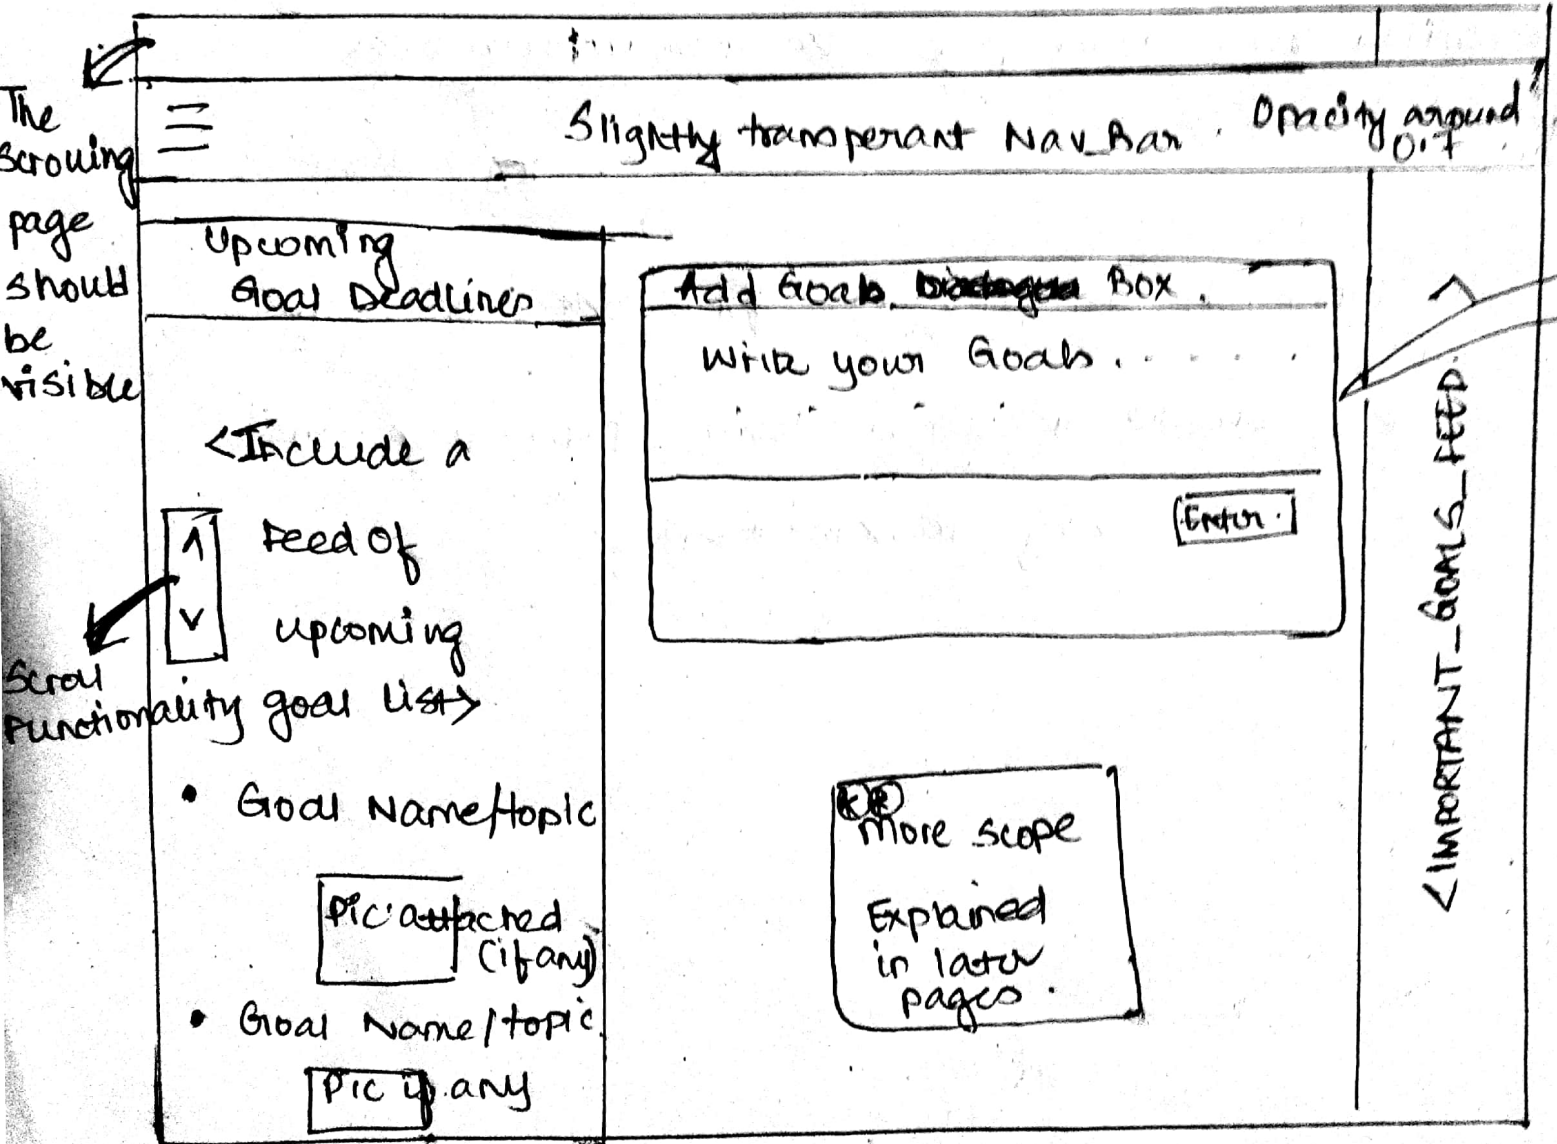 The
scrolling
page
should
be
visible
Slightly transperant Nav_Bar. Opacity around
0.7
Upcoming
Goal Deadlines
<Include a
Feed of
upcoming
goal list>
Scroll
Functionality
• Goal Name/topic
Pic attached
(if any)
• Goal Name/topic
Pic if any
Add Goals Box.
Write your Goals......
Enter.
More scope
Explained
in later
pages.
<IMPORTANT_GOALS_FEED>